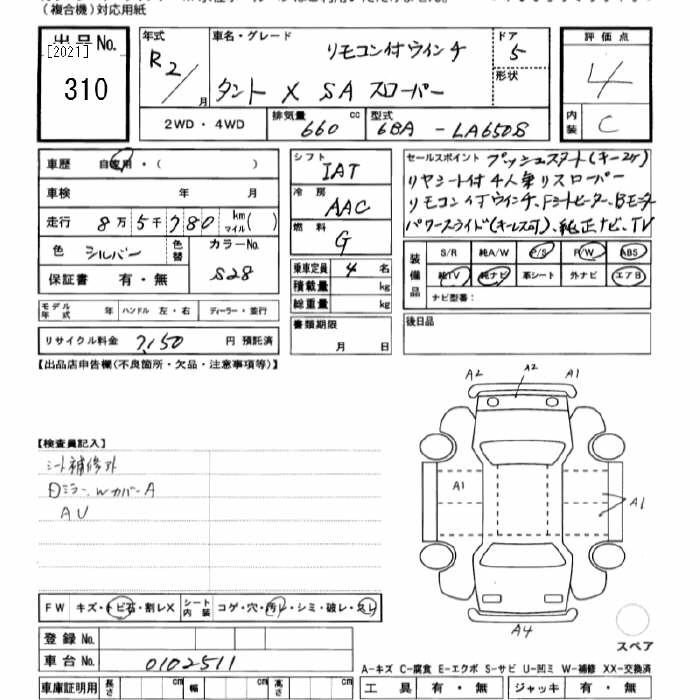 (複合機)対応用紙
出品No.
[2021]
310
年式
R2/月
車名・グレード
リモコン付ウインチ
タント X SA スローパー
ドア
5
形状
評価点
4
内装
C
2WD・4WD
排気量 660 cc
型式 6BA - LA650S
車歴 自家用・( )
車検 年 月
走行 8万5千780 km マイル( )
色 シルバー 色替
カラーNo. S28
保証書 有・無
シフト IAT
冷房 AAC
燃料 G
乗車定員 4 名
積載量 kg
総重量 kg
書類期限
月 日
セールスポイント プッシュスタート(キー2ケ)
リヤシート付4人乗リスローパー
リモコン付ウインチ、Fシートヒーター、Bモニタ
パワースライド(キーレス可)、純正ナビ、TV
装備品
S/R 純A/W P/S P/W ABS
純TV 純ナビ 革シート 外ナビ エアB
ナビ型番:
モデル年式 年 ハンドル 左・右 ディーラー・並行
リサイクル料金 7,150 円 預託済
後日品
【出品店申告欄(不良箇所・欠品・注意事項等)】
A2 A2 A1
A1
A1
A4
【検査員記入】
シート補修外
Dミラー、Wカバー A
AU
FW キズ・トビ石・割レX
シート内装 コゲ・穴・汚レ・シミ・破レ・スレ
スペア
登録No.
車台No. 0102511
A-キズ C-腐食 E-エクボ S-サビ U-凹ミ W-補修 XX-交換済
車庫証明用 長さ cm 幅 cm 高さ cm
工具 有・無 ジャッキ 有・無